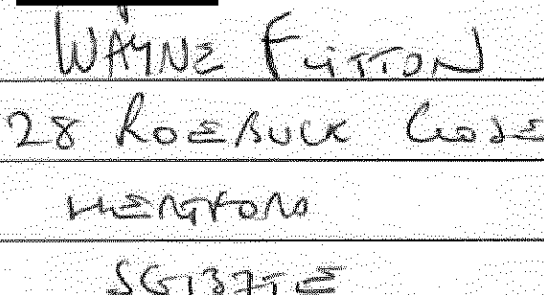 WAYNE FLITTON
28 ROEBUCK CLOSE
HERTFORD
SG137TE